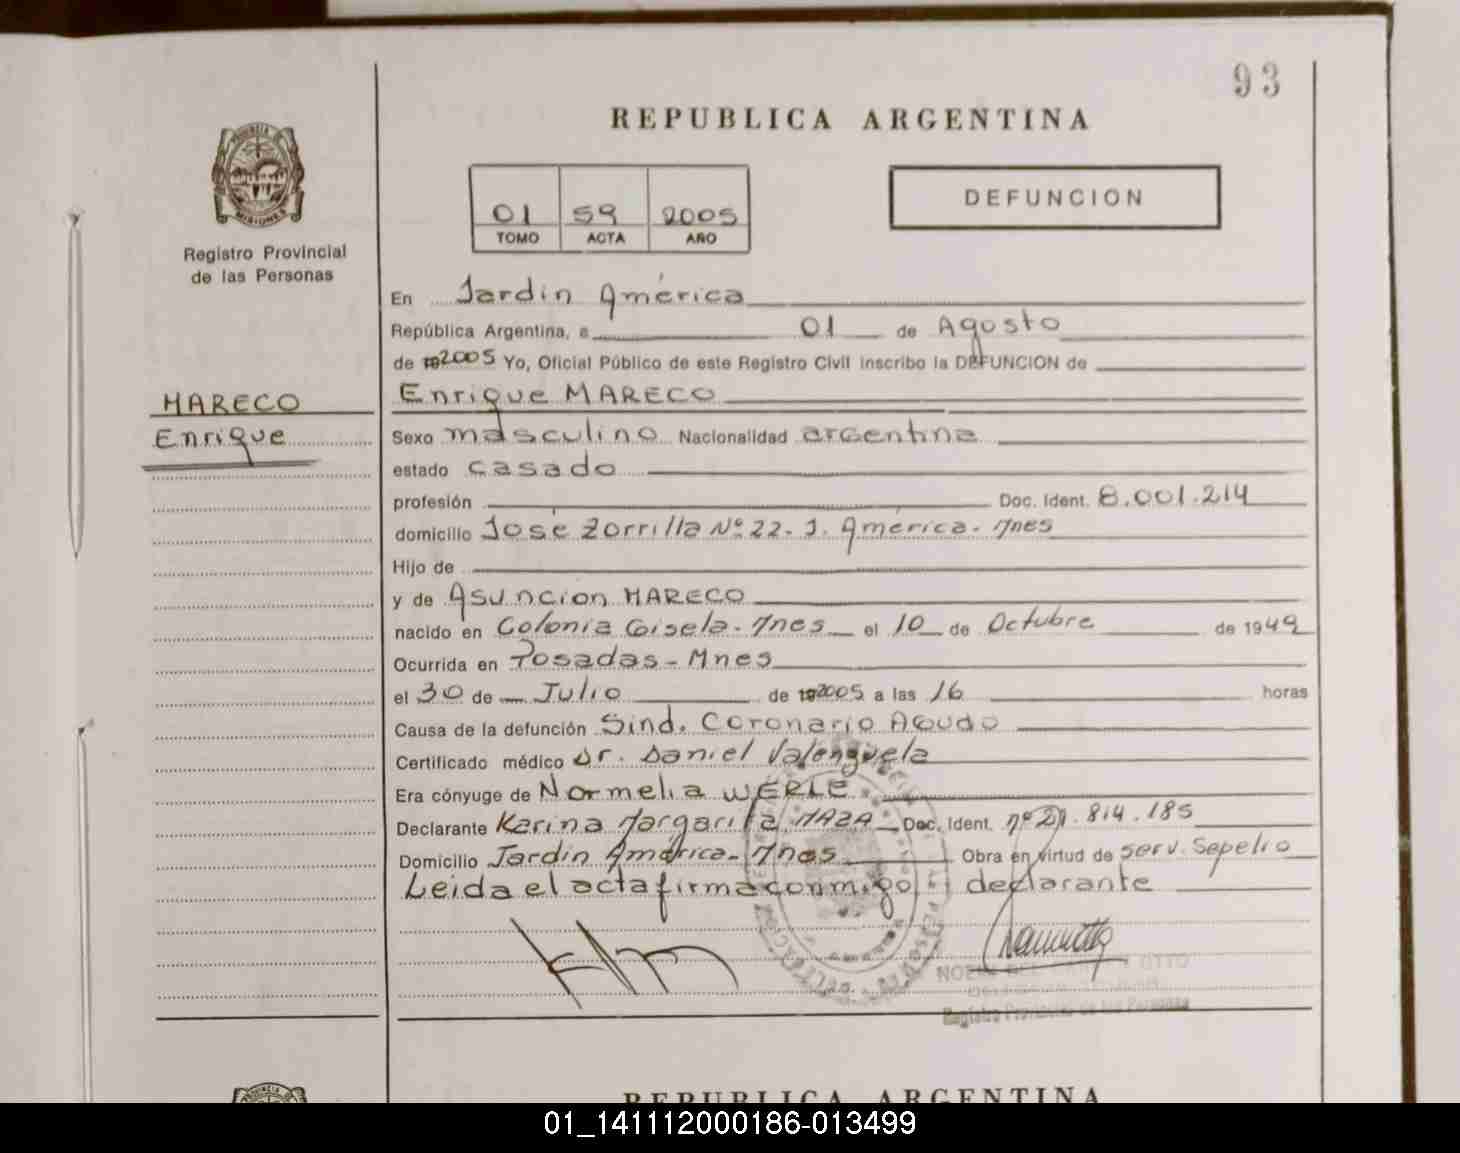 93
REPUBLICA ARGENTINA
PROVINCIA DE
MISIONES
Registro Provincial
de las Personas
01 59 2005
TOMO ACTA AÑO
DEFUNCION
MARECO
Enrique
En Jardin América
República Argentina, a 01 de Agosto
de 2005 Yo, Oficial Público de este Registro Civil inscribo la DEFUNCION de
Enrique MARECO
Sexo masculino Nacionalidad argentina
estado casado
profesión Doc. Ident. 8.001.214
domicilio José Zorrilla Nº 22 - J. América - Mnes
Hijo de
y de Asuncion MARECO
nacido en Colonia Gisela - Mnes el 10 de Octubre de 1949
Ocurrida en Posadas - Mnes
el 30 de Julio de 2005 a las 16 horas
Causa de la defunción Sind. Coronario Agudo
Certificado médico Dr. Daniel Valenzuela
Era cónyuge de Normelia WERLE
Declarante Karina Margarita MAZA Doc. Ident. nº 21.814.185
Domicilio Jardin América - Mnes Obra en virtud de serv. Sepelio
Leida el acta firma conmigo declarante
Registro Provincial de las Personas
REPUBLICA ARGENTINA
01_141112000186-013499